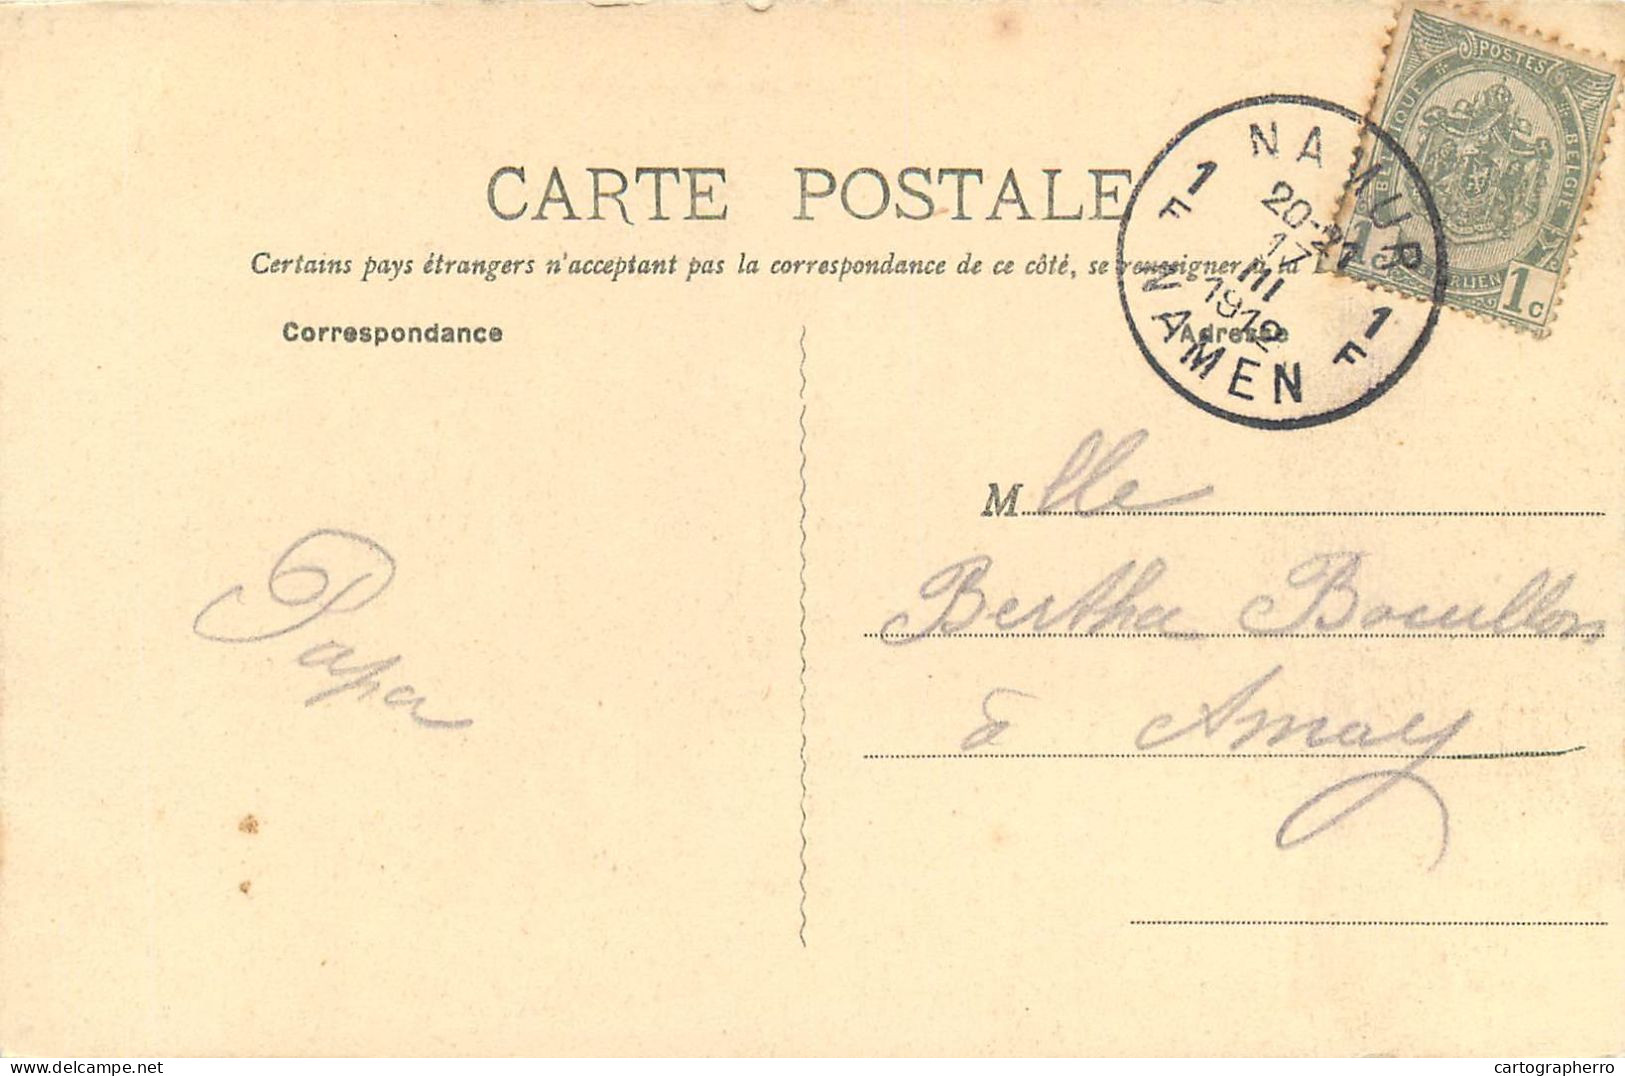 POSTES
BELGIE
1 1c
CARTE POSTALE
NAMUR
1 F
20-21
17
III
1912
1 F
NAMEN
Certains pays étrangers n'acceptant pas la correspondance de ce côté, se renseigner à la
Correspondance
Adresse
Mlle
Bertha Bouillon
à Amay
Papa
cartographerro